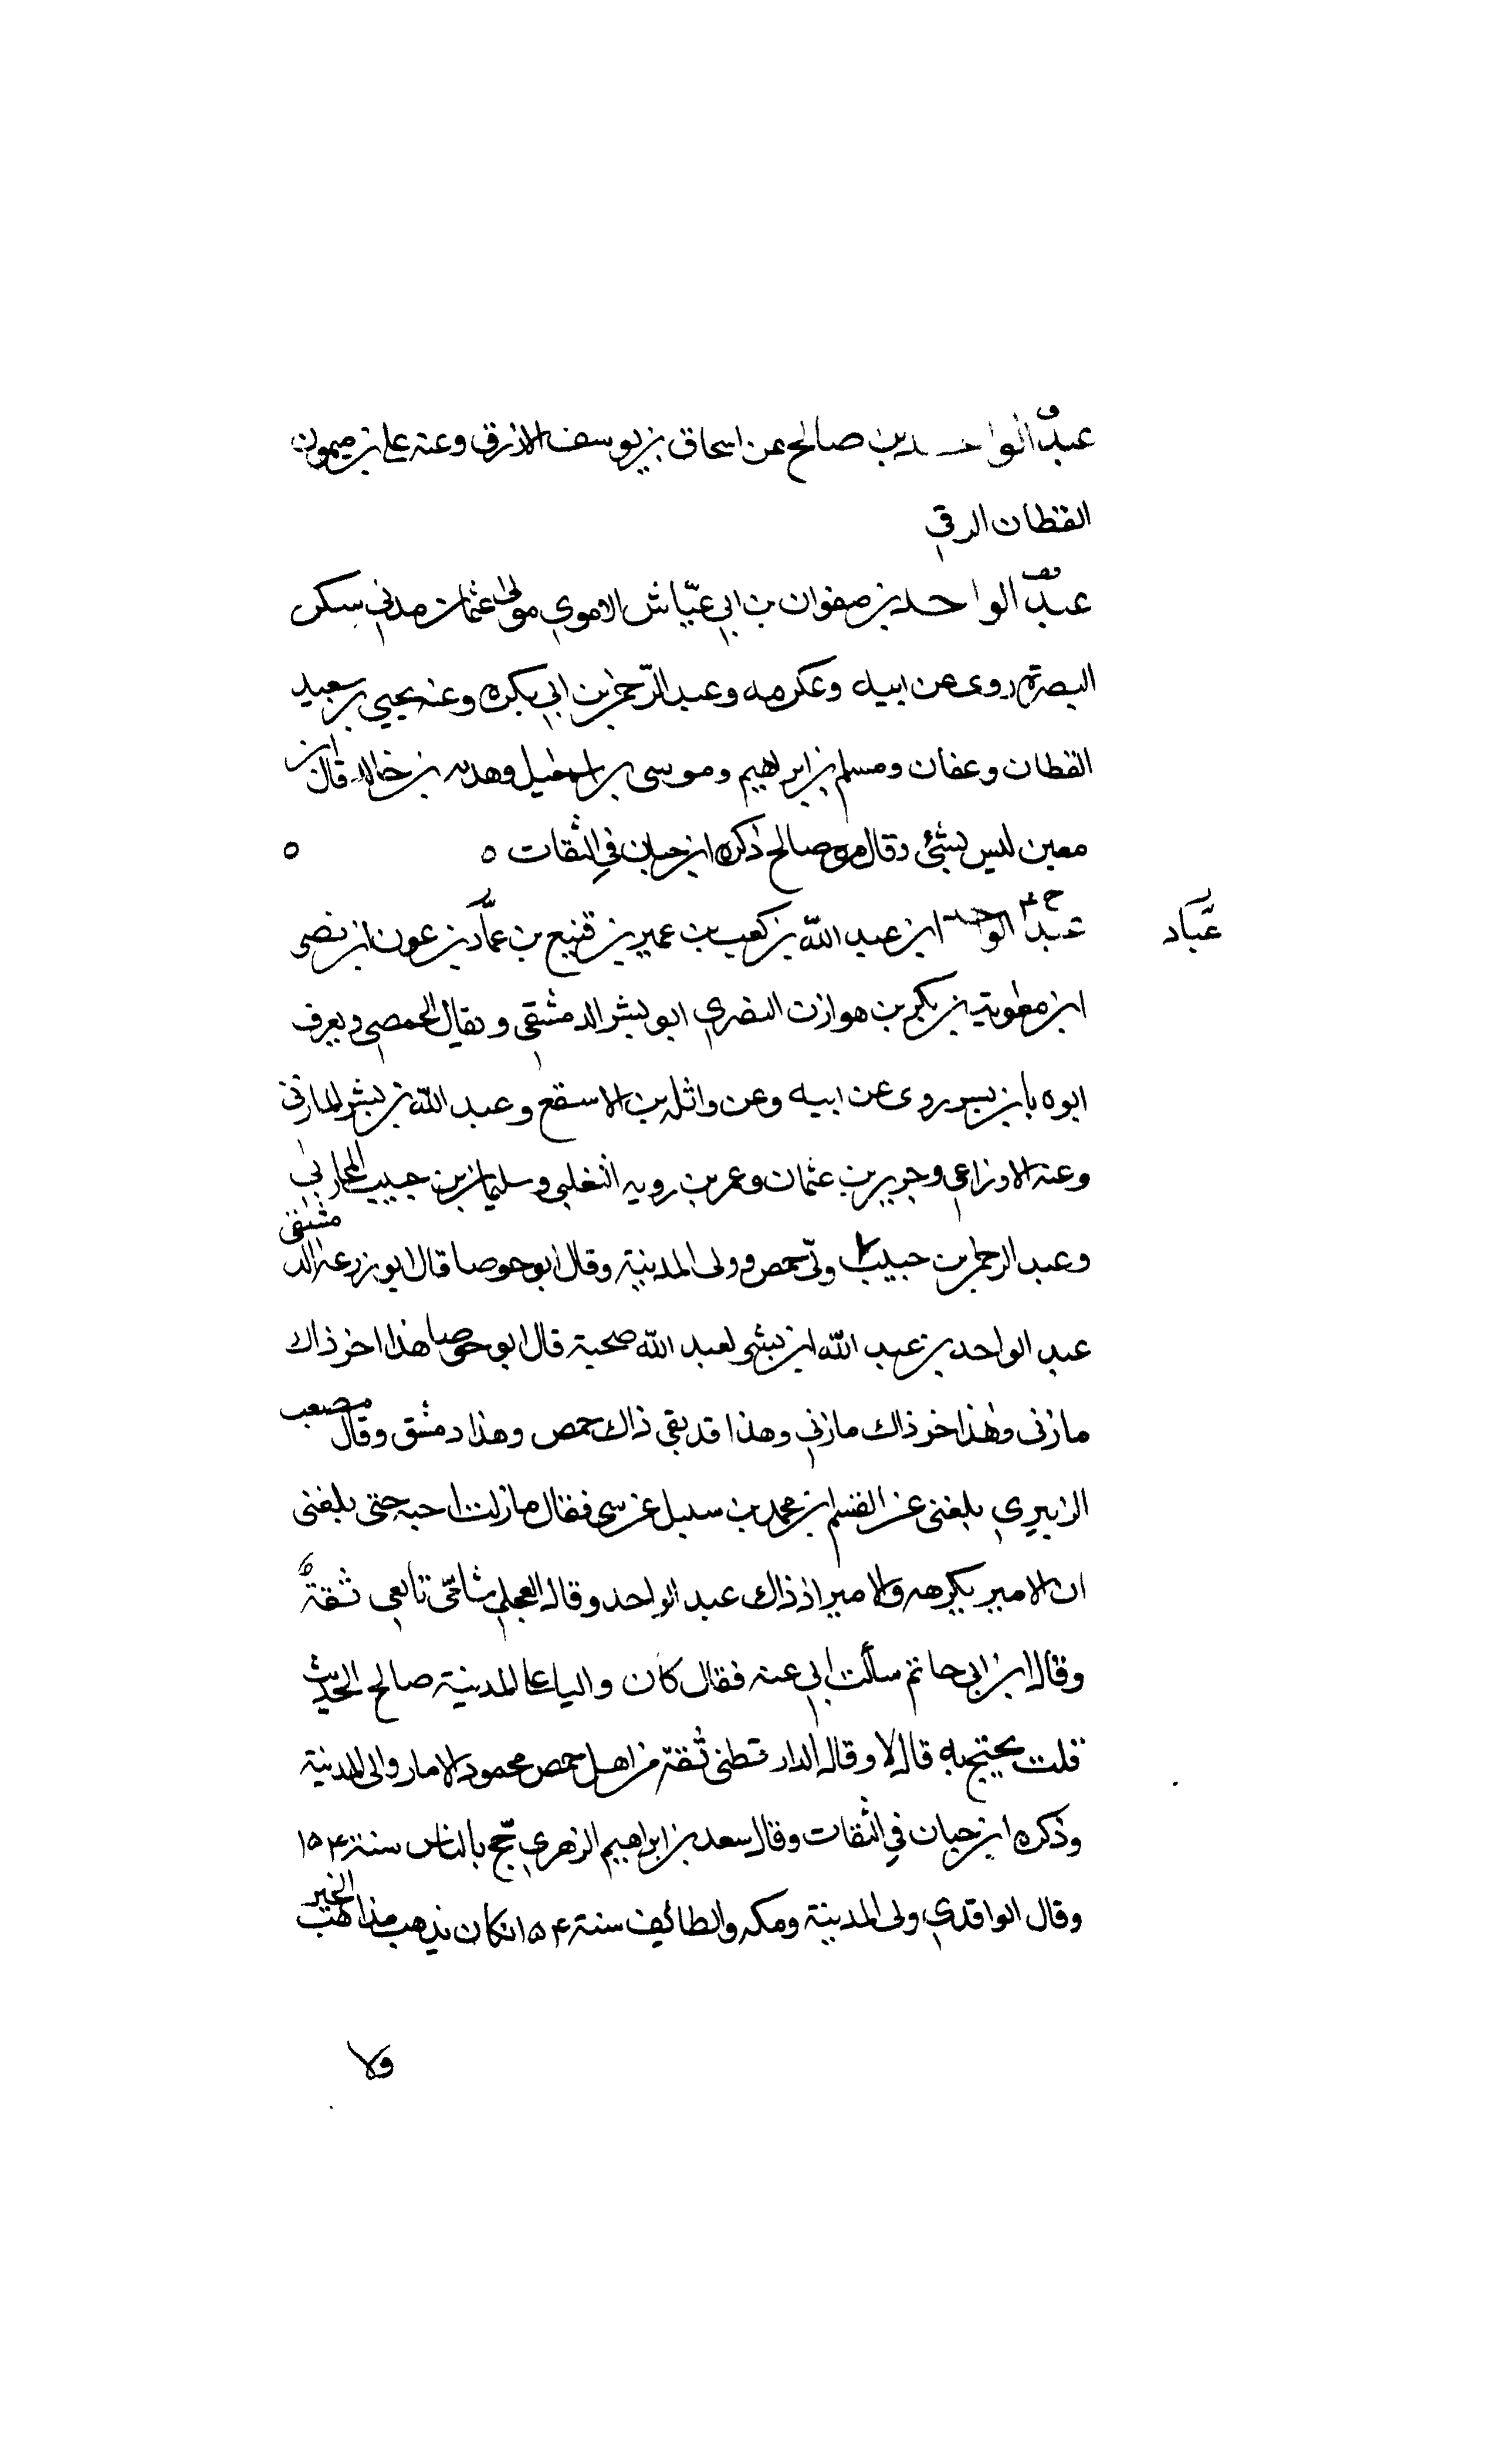 عبد الواحد بن صالح عن اسحاق بن يوسف الازرق وعنه علي بن ميمون
القطان الرقي
عبد الواحد بن صفوان بن ابي عيّاش الاموي مولى عثمان مدني سكن
البصرة روى عن ابيه وعكرمه وعبد الرّحمن بن ابي بكره وعنه يحيي بن سعيد
القطان وعفان ومسلم بن ابراهيم وموسى بن اسمعيل وهدبه بن خالد قال ابن
معين ليس بشئ وقال مره صالح ذكره ابن حبان في الثقات ه ه
ح ۴
عبد الواحد ابن عبد اللّه بن كعب بن عمير بن قنيع بن عبّاد بن عون ابن نصر
عبّاد
ابن معوية بن بكر بن هوازن النصري ابو بشر الدمشقي ويقال الحمصي ويعرف
ابوه بابن بسر روى عن ابيه وعن واثله بن الاسقع وعبد اللّه بن بشر المازني
وعنه الاوزاعي وجرير بن عثمان وعمر بن روبه التغلبي وسليمان بن حبيب المحاربي
وعبد الرحمن بن حبيب ولّي حمص وولى المدينة وقال ابو حوصا قال ابو زرعه الدمشقى
عبد الواحد بن عبد اللّه ابن بشر لعبد اللّه صحبة قال ابو حوصا هذا اخر ذاك
مازنى وهذا خر ذاك مازني وهذا قد بقي ذاك حمص وهذا دمشق وقال مصعب
الزبيري بلغنى عن القسم ابن محمد بن سئل عن شي فقال ما زلت احبه حتى بلغنى
ان الامير يكرهه والامير اذ ذاك عبد الواحد وقال العجلي شامّي تابعي ثقةٌ
وقال ابن ابى حاتم سألت ابي عنه فقال كان واليا على المدينة صالح الحديث
قلت يحتج به قال لا وقال الدار قطنى ثقة من اهل حمص محمود الامار والى المدينة
وذكره ابن حبان في الثقات وقال سعد بن ابراهيم الزهري حجّ بالناس سنة ١٥۴
وقال الواقدي ولى المدينة ومكه والطائف سنة ١٥۴ فكان يذهب مذاهب الخير
ولا